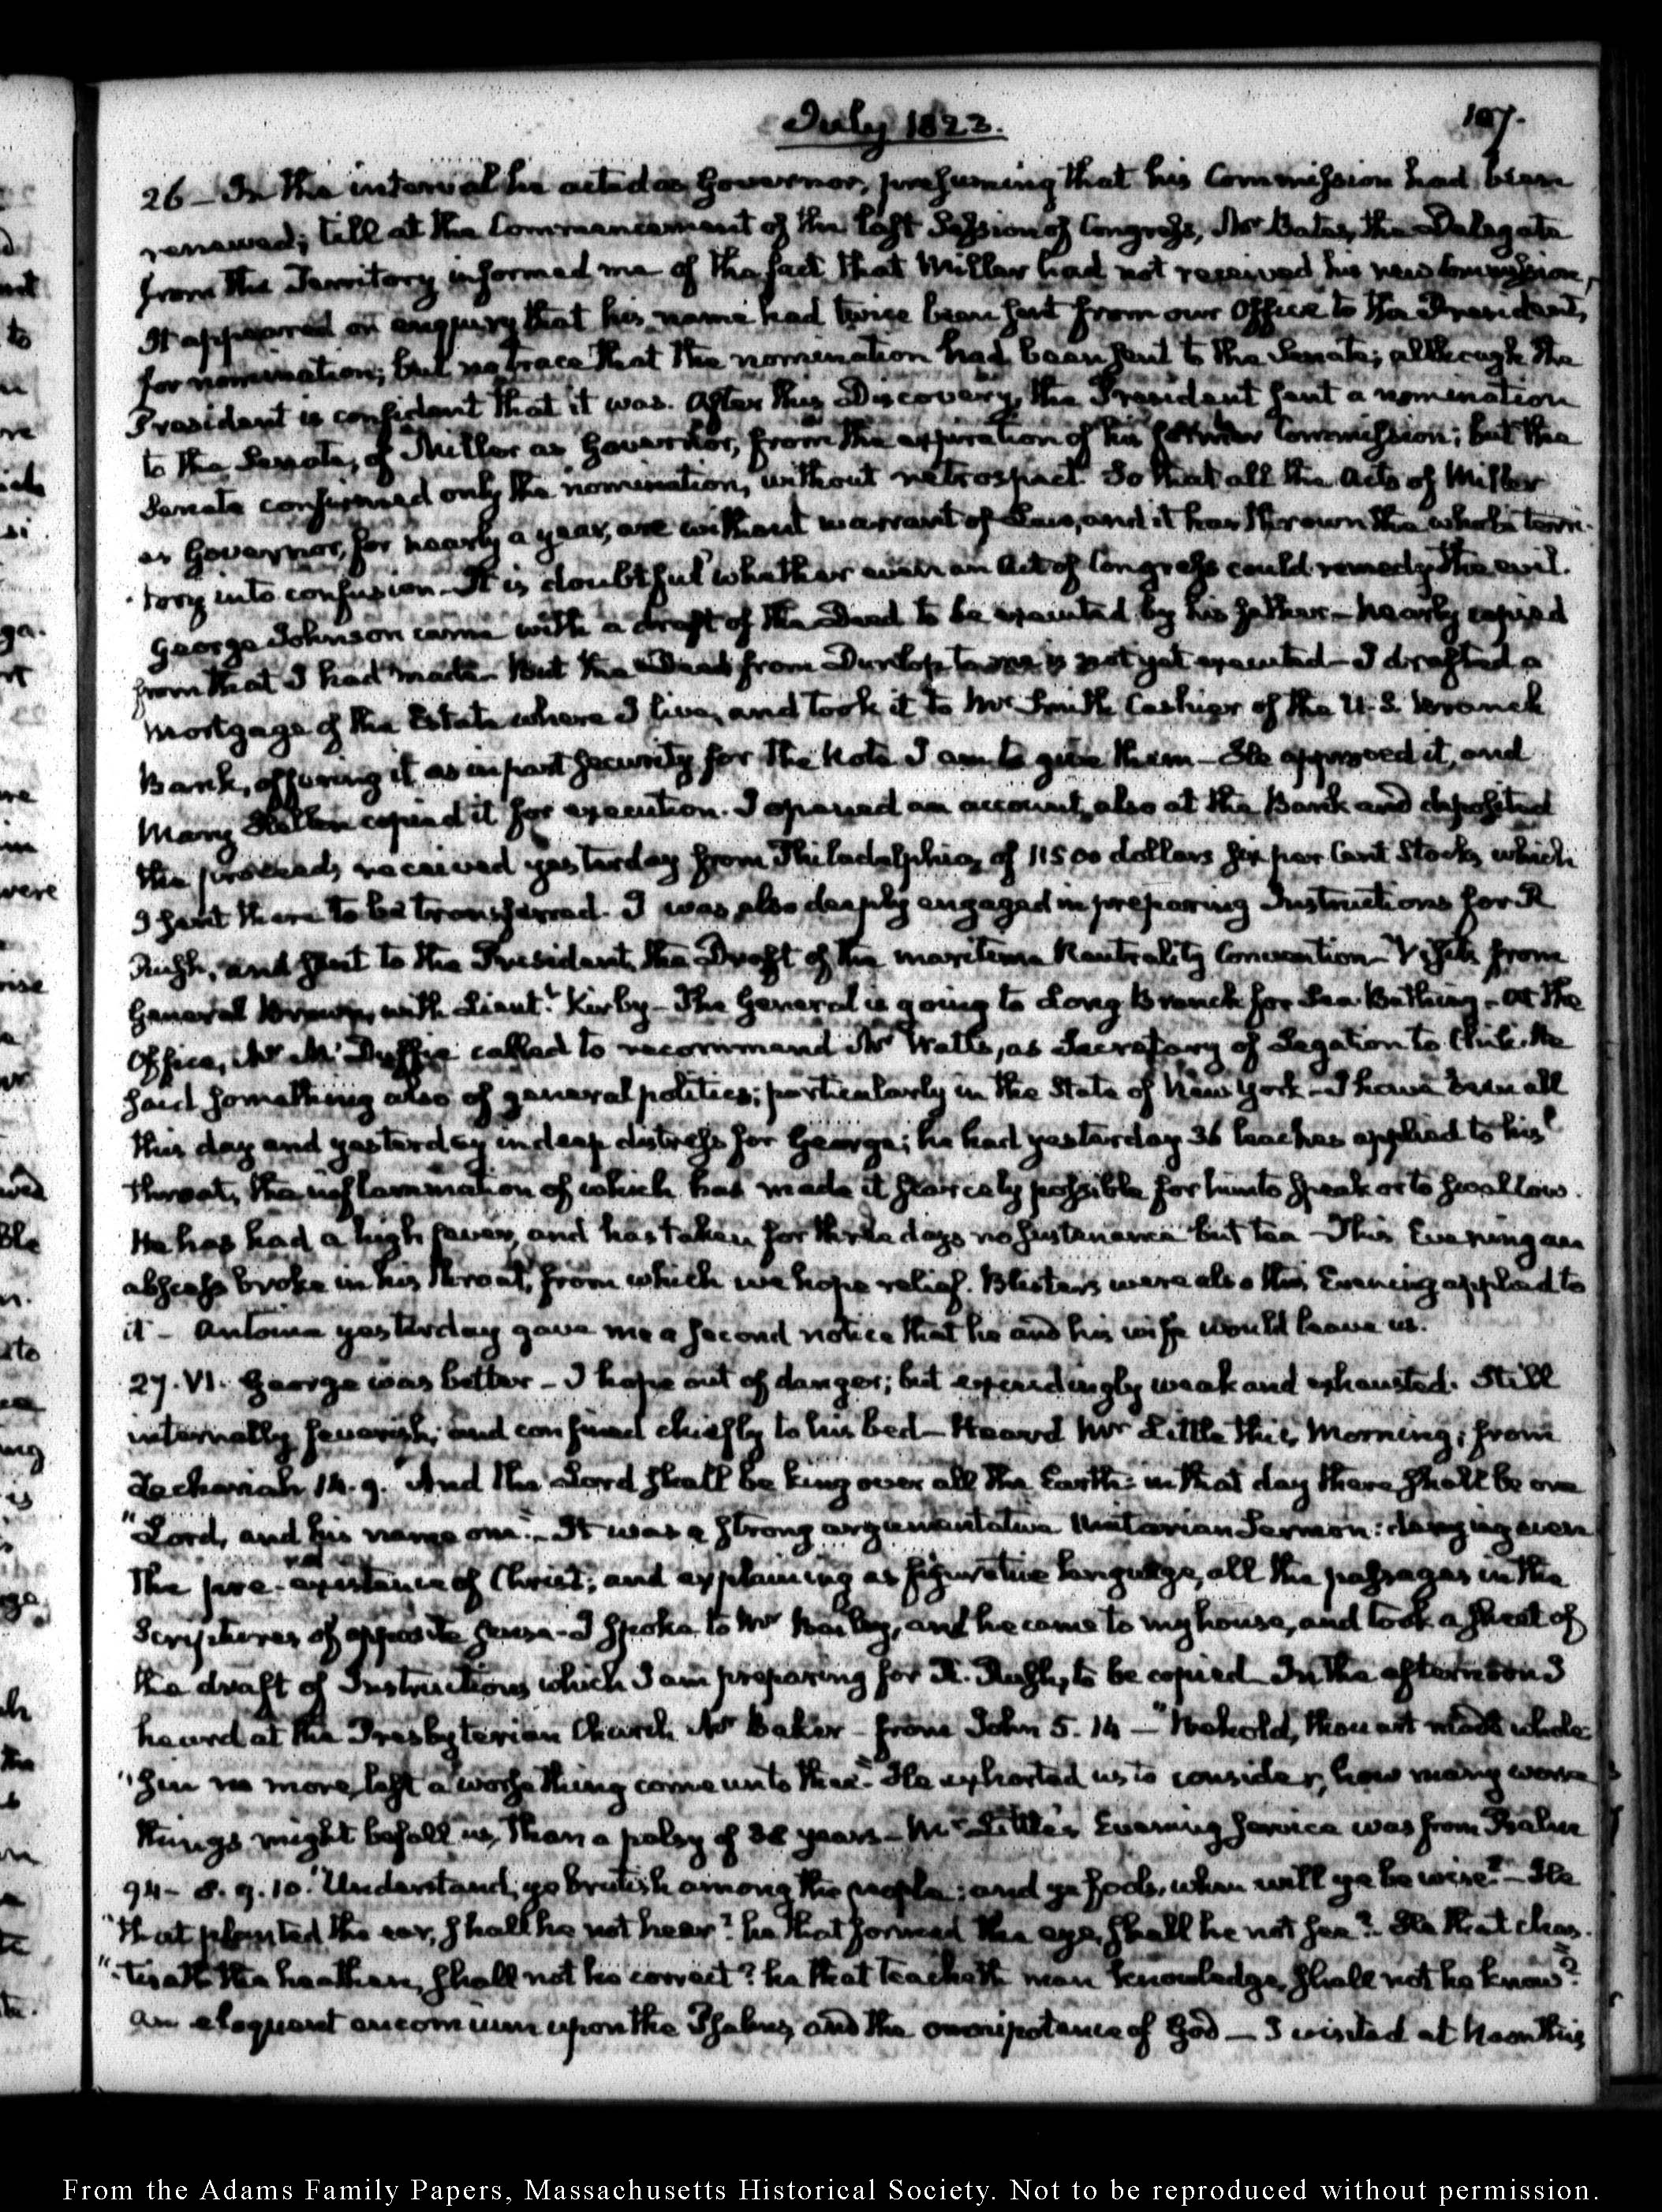 July 1823.
107.
26 – In the interval he acted as Governor, presuming that his Commission had been
renewed; till at the Commencement of the last Session of Congress, Mr Bates, the Delegate
from the Territory informed me of the fact that Miller had not received his new Commission,
It appeared on enquiry that his name had twice been sent from our Office to the President,
for nomination; but no trace that the nomination had been sent to the Senate; although the
President is confident that it was. After this Discovery, the President sent a nomination
to the Senate, of Miller as Governor, from the expiration of his former Commission; but the
Senate confirmed only the nomination, without retrospect. So that all the Acts of Miller
as Governor, for nearly a year, are without warrant of Law, and it has thrown the whole terri-
-tory into confusion – It is doubtful whether even an Act of Congress could remedy the evil.
George Johnson came with a draft of the Deed to be executed by his father – nearly copied
from that I had made – But the Deed from Dunlop to me is not yet executed – I drafted a
Mortgage of the Estate where I live, and took it to Mr Smith Cashier of the U.S. Branch
Bank, offering it as in part security for the Note I am to give them – He approved it, and
Mary Hellen copied it for execution. I opened an account, also at the Bank and deposited
the proceeds received yesterday from Philadelphia, of 11500 dollars six per Cent Stocks, which
I sent there to be transferred. I was also deeply engaged in preparing Instructions for R
Rush, and sent to the President, the Draft of the maritime Neutrality Convention – Visits from
General Brown, with Lieutt Kirby – The General is going to Long Branch for Sea-Bathing – At the
Office, Mr McDuffie called to recommend Mr Watts, as Secretary of Legation to Chili. He
said something also of general politics; particularly in the State of New York – I have been all
this day and yesterday in deep distress for George; he had yesterday 36 leaches applied to his
throat, the inflammation of which has made it scarcely possible for him to speak or to swallow.
He has had a high fever, and has taken for three days no sustenance but tea – This Evening an
abscess broke in his throat, from which we hope relief. Blisters were also this Evening applied to
it – Antoine yesterday gave me a second notice that he and his wife would leave us.
27. VI. George was better – I hope out of danger; but exceedingly weak and exhausted. Still
internally feverish, and confined chiefly to his bed – Heard Mr Little this Morning; from
Zechariah 14. 9. "And the Lord shall be king over all the Earth: in that day there shall be one
"Lord, and his name one." – It was a strong argumentative Unitarian Sermon: denying even
the pre-existence of Christ; and explaining as figurative language, all the passages in the
Scriptures of opposite sense – I spoke to Mr Bailey, and he came to my house, and took a sheet of
the draft of Instructions which I am preparing for R. Rush, to be copied – In the afternoon I
heard at the Presbyterian Church Mr Baker – from John 5. 14 – "Behold, thou art made whole:
"sin no more, lest a worse thing come unto thee." He exhorted us to consider, how many worse
things might befall us, than a palsy of 38 years – Mr Little's Evening service was from Psalm
94 – 8. 9. 10. "Understand, ye brutish among the people: and ye fools, when will ye be wise? – He
"that planted the ear, shall he not hear? he that formed the eye, shall he not see? – He that chas-
"-tiseth the heathen, shall not he correct? he that teacheth man knowledge, shall not he know?"
an eloquent encomium upon the Psalms, and the omnipotence of God – I visited at Noon this
From the Adams Family Papers, Massachusetts Historical Society. Not to be reproduced without permission.